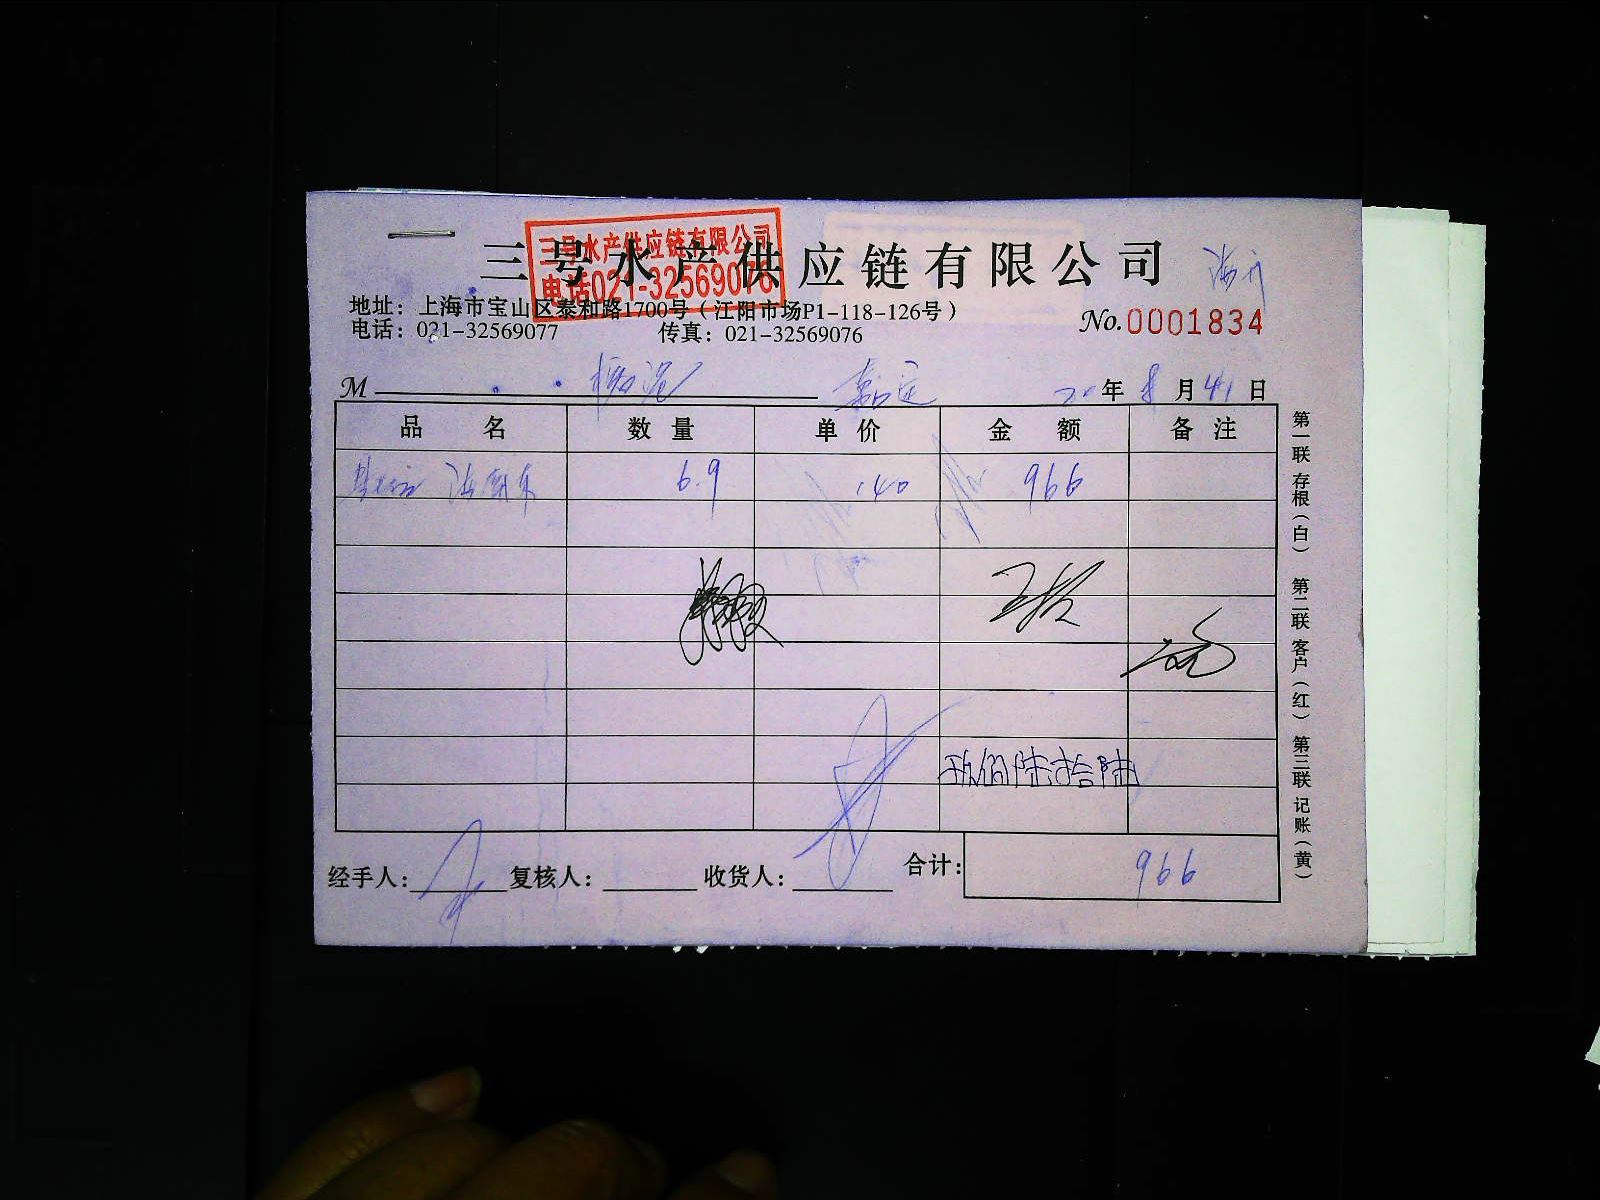 三号水产供应链有限公司
电话021-32569076
三号水产供应链有限公司
地址：上海市宝山区泰和路1700号（江阳市场P1-118-126号）
电话：021-32569077 传真：021-32569076
No.0001834
M 嘉定 20年8月 日
品名 数量 单价 金额 备注
6.9 140 966
玖佰陆拾陆
经手人： 复核人： 收货人： 合计： 966
第一联 存根（白） 第二联 客户（红） 第三联 记账（黄）